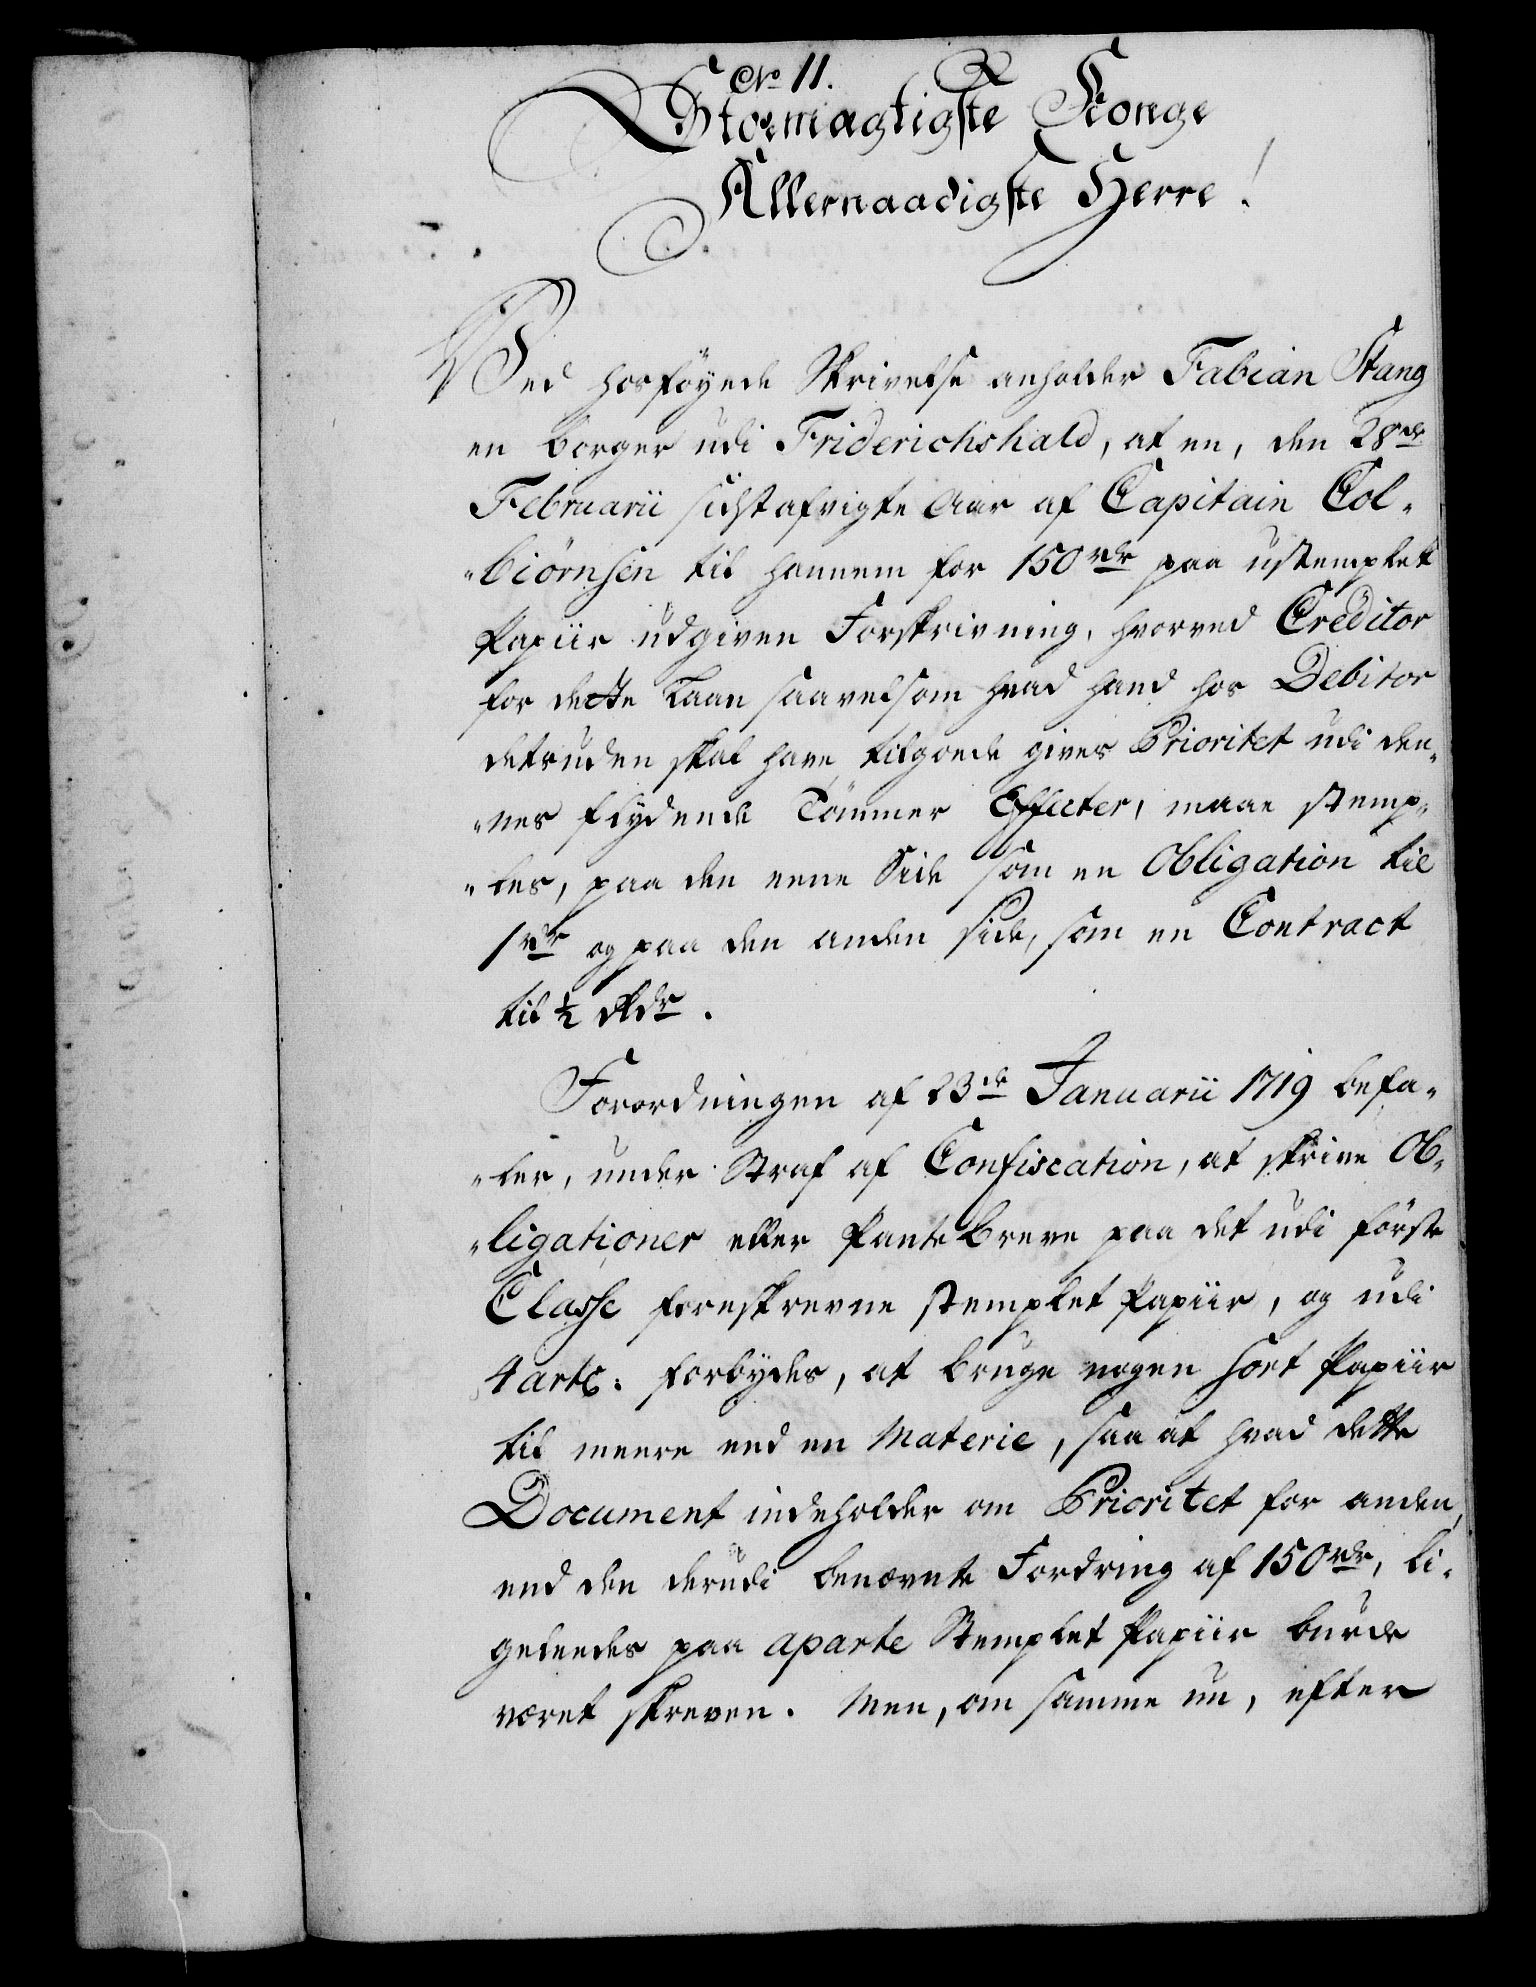 No 11.
Stormægtigste Konge
Allernaadigste Herre!
Ved hosföyede Skrivelse anholder Fabian Stang
en borger udi Friderichshald, at en, den 28de
Februarii sidstafvigte Aar af Capitain Col-
-biörnsen til hannem for 150 rdr paa ustemplet
Papiir udgiven Forskrivning, hvorved Creditor
for dette Laan saavelsom hvad hand hos Debitor
desuden skal have tilgode gives Prioritet udi den-
-nes flydende Tömmer Effecter, maae stemp-
-les, paa den eene Side som en Obligation til
1 rdr og paa den anden side, som en Contract
til ½ rdr.
Forordningen af 23de Januarii 1719 befa-
-ler, under Straf af Confiscation, at skrive Ob-
-ligationer eller Pantebreve paa det udi förste
Classe foreskrevne stemplet Papiir, og udi
4 artc: forbydes, at bruge nogen sort Papiir
til meere end en Materie, saa at hvad dette
Document indeholder om Prioritet for anden,
end den derudi benævnte Fordring af 150 rdr, li-
geledes paa aparte Stemplet Papiir burde
været skreven. Men, om samme nu, efter